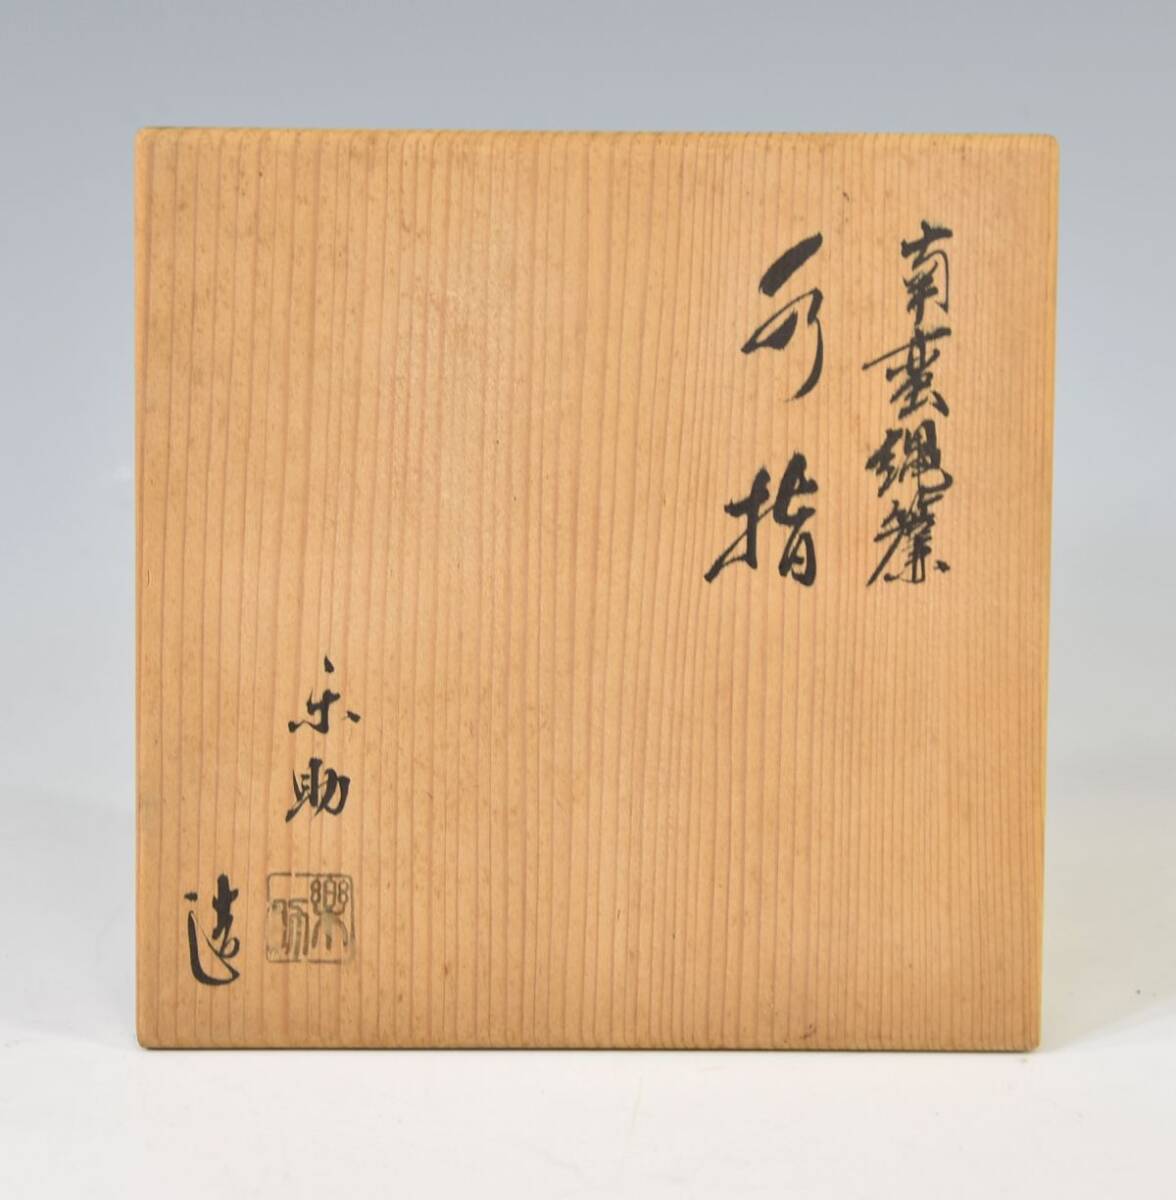 南蛮縄簾
水指
楽助
造
楽助